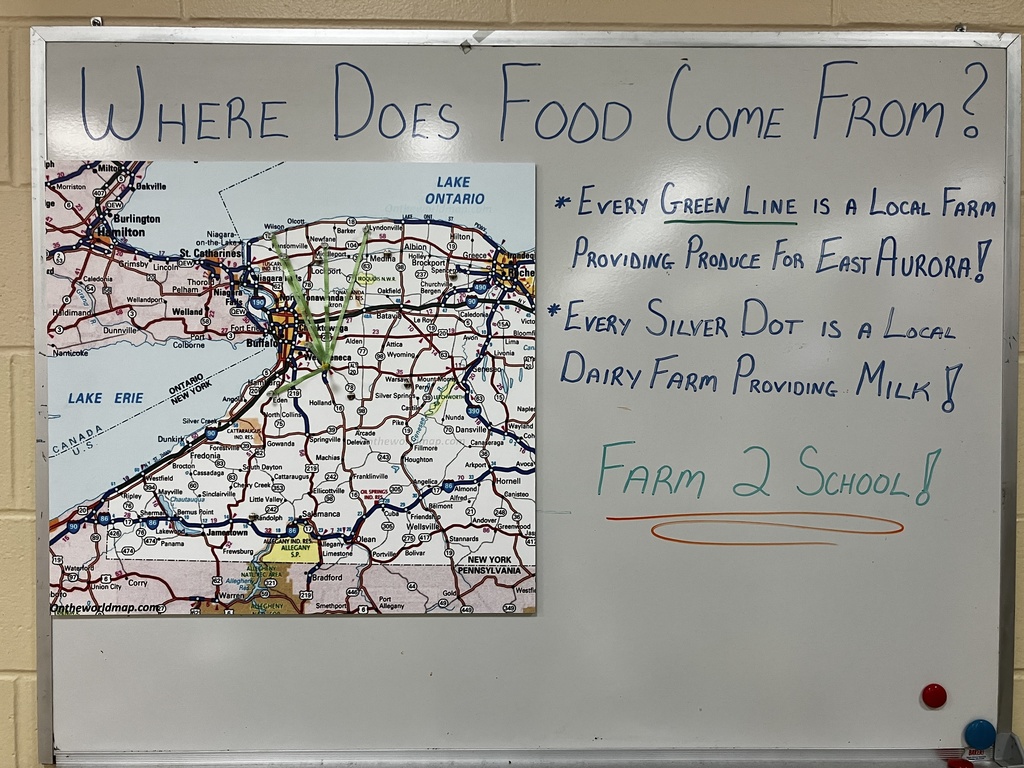 WHERE DOES FOOD COME FROM?
* EVERY GREEN LINE IS A LOCAL FARM
PROVIDING PRODUCE FOR EAST AURORA!
* EVERY SILVER DOT IS A LOCAL
DAIRY FARM PROVIDING MILK!
FARM 2 SCHOOL!
LAKE
ONTARIO
Milton
Morriston
Oakville
407
QEW
Burlington
Hamilton
Niagara-
on-the-Lake
St. Catharines
Grimsby
Lincoln
Pelham
Thorold
Caledonia
Niagara
Falls
Wellandport
Welland
Haldimand
Dunnville
Port
Colborne
Nanticoke
Fort Erie
Buffalo
Wilson
Olcott
Newfane
Barker
Lyndonville
Lockport
Medina
Albion
Holley
Brockport
Hilton
Greece
Spencerport
Churchville
Bergen
Oakfield
Batavia
Le Roy
Caledonia
Avon
Livonia
Geneseo
Alden
Attica
Wyoming
Warsaw
Perry
Mount Morris
Silver Springs
Castile
LETCHWORTH
Nunda
Dansville
Holland
Eden
North Collins
Springville
Arcade
Delevan
Pike
Fillmore
Houghton
Canaseraga
Arkport
Hornell
Canisteo
Avoca
Wayland
Naples
LAKE ERIE
ONTARIO
NEW YORK
CANADA
U.S.
Silver Creek
Dunkirk
CATTARAUGUS
IND. RES.
Forestville
Gowanda
Fredonia
Brocton
Cassadaga
South Dayton
Cherry Creek
Cattaraugus
Machias
Franklinville
Ellicottville
Little Valley
Westfield
Ripley
Mayville
Chautauqua
Sinclairville
Bemus Point
Sherman
Lakewood
Jamestown
Panama
Frewsburg
Randolph
Salamanca
OIL SPRINGS
IND. RES.
Cuba
Friendship
Belmont
Angelica
Almond
Alfred
Andover
Greenwood
Wellsville
Stannards
Bolivar
Portville
Olean
Allegany
Limestone
ALLEGANY IND. RES.
ALLEGANY
S.P.
NEW YORK
PENNSYLVANIA
Waterford
Union City
Corry
Warren
Bradford
Smethport
Port
Allegany
Gold
ALLEGHENY
Ontheworldmap.com
ontheworldmap.com